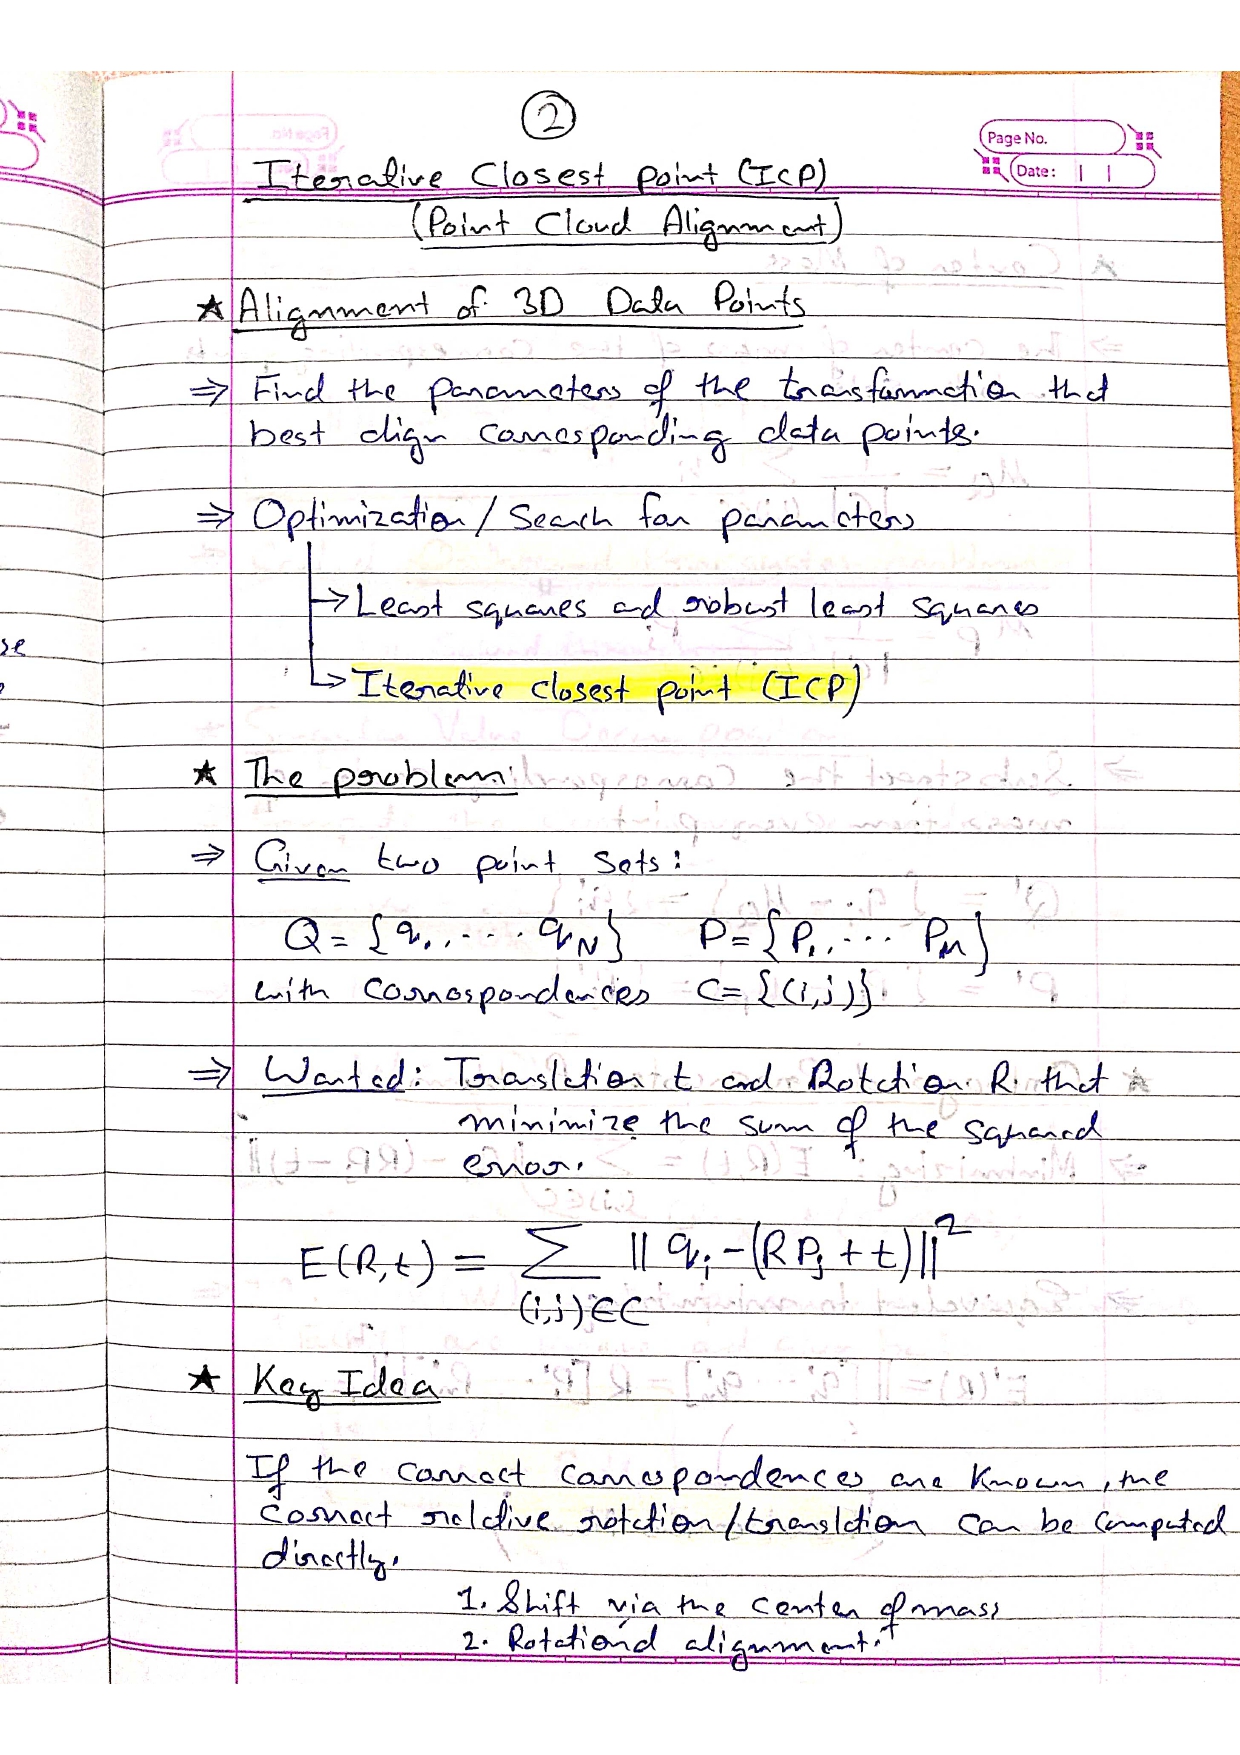 ②
Page No.
Date:
Iterative Closest point (ICP)
(Point Cloud Alignment)
★ Alignment of 3D Data Points
⇒ Find the parameters of the transformation that
best align corresponding data points.
⇒ Optimization / Search for parameters
→ Least squares and robust least squares
→ Iterative closest point (ICP)
★ The problem:
⇒ Given two point sets:
Q = {q₁, .... qN} P = {P₁, .... PM}
with correspondences C = {(i,j)}
⇒ Wanted: Translation t and Rotation R that
minimize the sum of the squared
error.
E(R,t) = Σ || qi - (R Pj + t) ||²
(i,j)∈C
★ Key Idea
If the correct correspondences are known, the
correct relative rotation/translation can be computed
directly.
1. Shift via the center of mass
2. Rotational alignment.
se